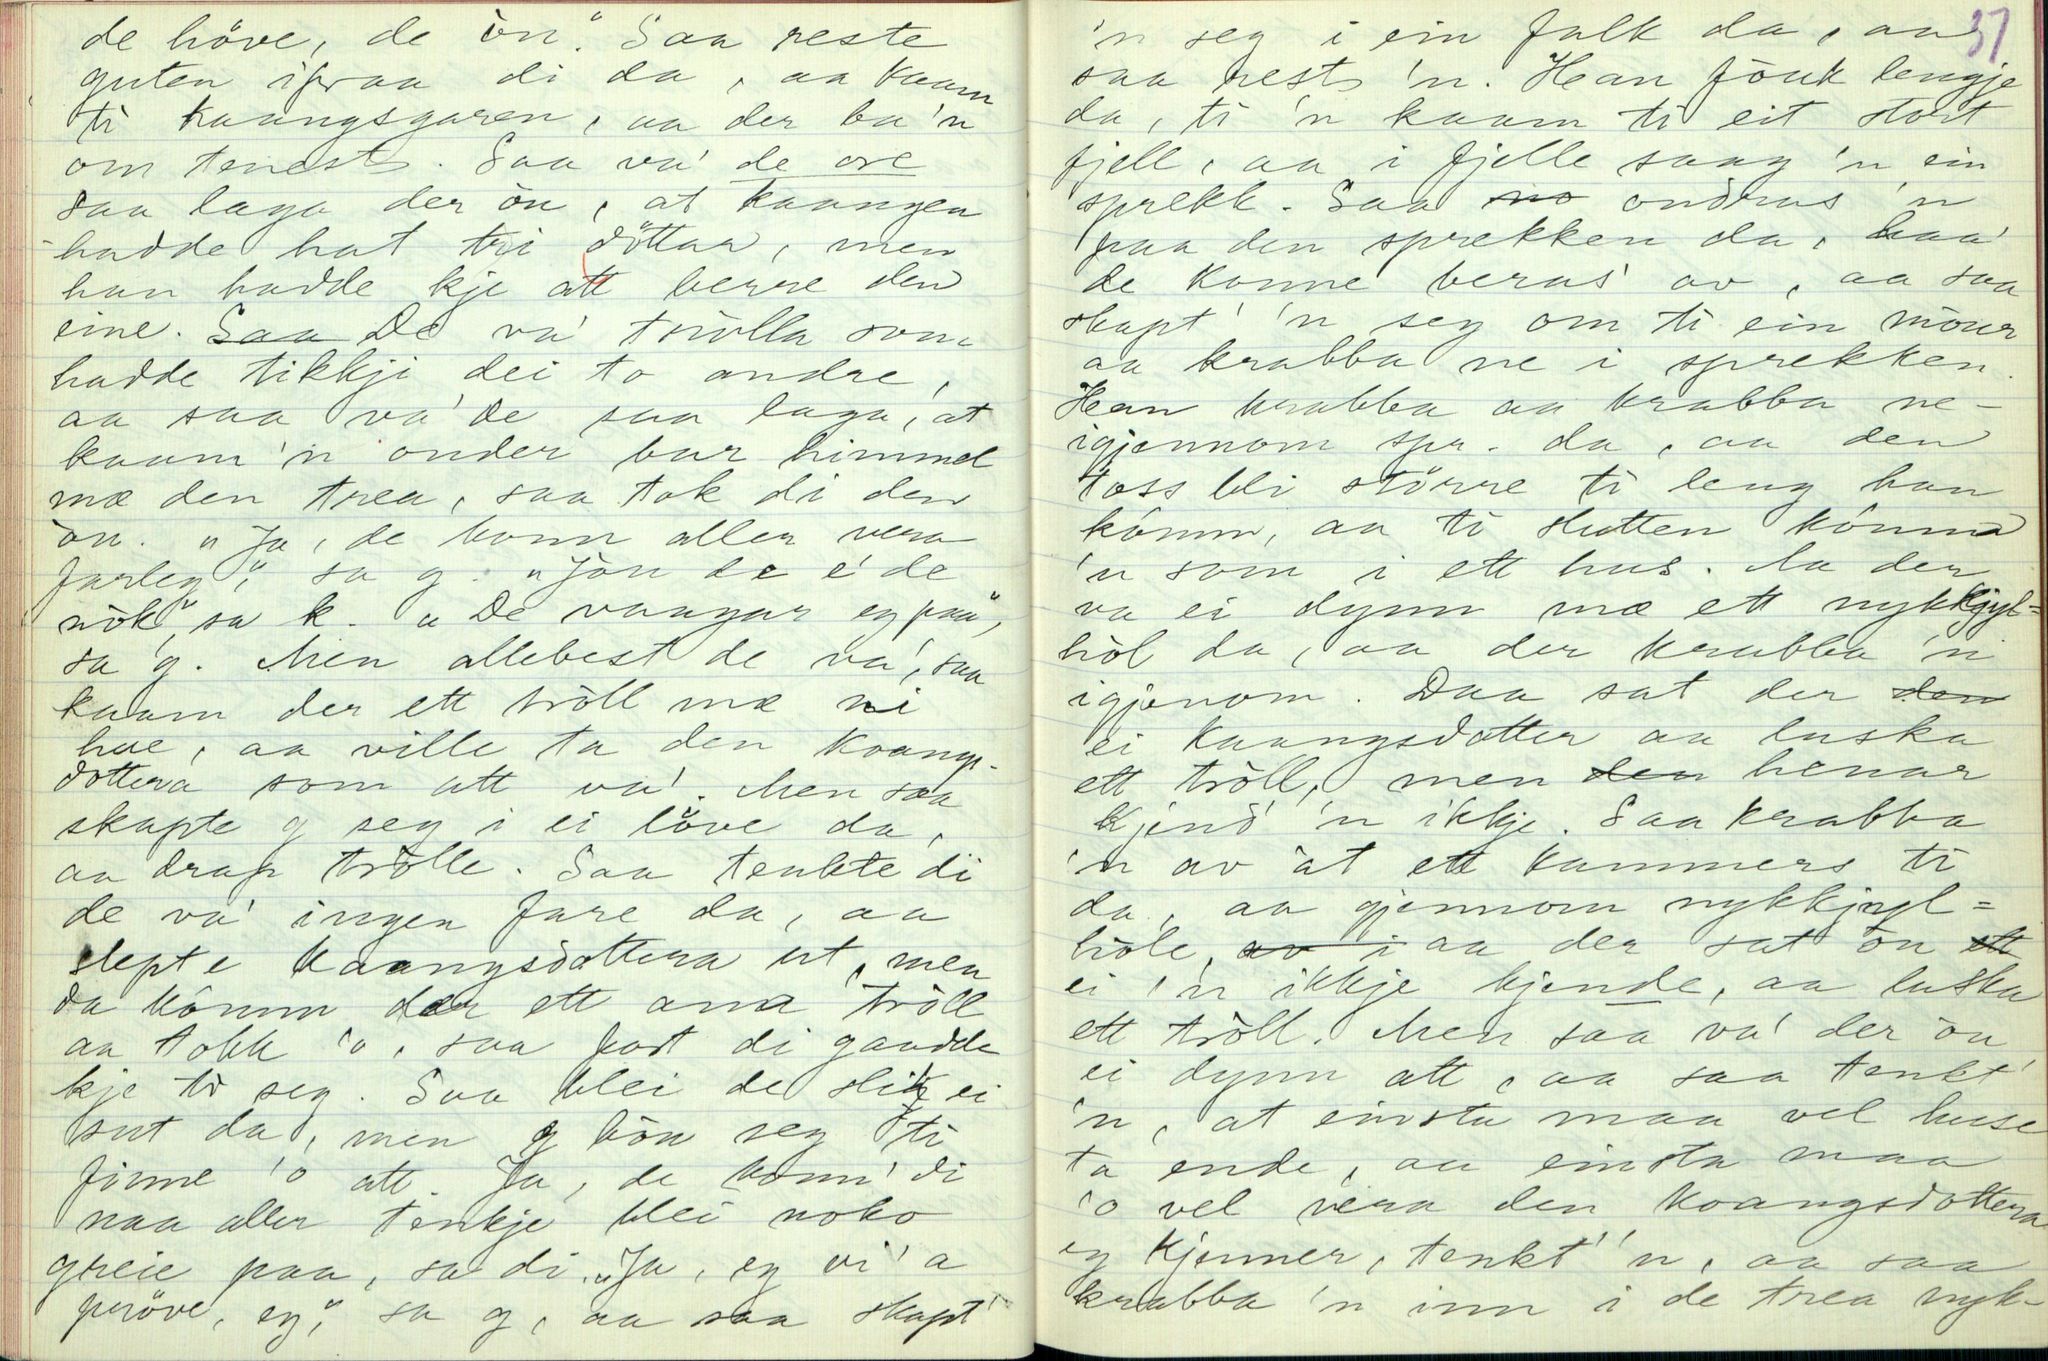 de höve, de òn." Saa reste
guten ifraa di da, aa kaam
ti kaangsgaren, aa der ba 'n
om tenest. Saa va' de ore
saa laga der òn, at kaangen
hadde hat tri döttar, men
han hadde kje att berre den
eine. Saa De va' tròlla som
hadde tikkji dei to andre,
aa saa va' de saa laga, at
kaam 'n onder bar himmel
mæ den trea, saa tok di den
òn. "Ja, de konn aller vera
farleg," sa g. "Jòu de e' de
nòk," sa k. "De vaagar eg paa",
sa g. Men allebest de va', saa
kaam der ett tròll mæ ni
hue, aa ville ta den kaangs-
dottera som att va'. Men saa
skapte g seg i ei löve da,
aa drap tròlle. Saa tenkte di
de va' ingen fare da, aa
slepte kaangsdottera ut, men
da kômm der ett ana tròll
aa tokk 'o, saa fort di gaadde
kje ti seg. Saa blei de slik ei
sut da, men g bòu seg ti
finne 'o att. Ja, de konn' di
naa aller tenkje blei noko
greie paa, sa di. "Ja, eg vi' a
pröve, eg," sa g, aa saa skapt'
37
'n seg i ein falk da, aa
saa reste 'n. Han fòuk lengje
da, ti 'n kaam ti eit stort
fjell, aa i fjelle saag 'n ein
sprekk. Saa no ondras 'n
paa den sprekken da, haa'
de konne veras av, aa saa
skapt' 'n seg om ti ein mòur
aa krabba ne i sprekken.
Han krabba aa krabba ne-
igjennom spr. da, aa den
toss bli större ti leng han
kômm, aa ti slutten kômm
'n som i ett hus. Aa der
va ei dynn mæ ett nykkjyl=
hòl da, aa der krabba 'n
igjenom. Daa sat der den
ei kaangsdotter aa luska
ett tròll, men den henar
kjend' 'n ikkje. Saa krabba
'n av àt ett kammers ti
da, aa gjennom nykkjyl=
hòle, av i aa der sat òn ett
ei 'n ikkje kjende, aa luska
ett tròll. Men saa va' der òn
ei dynn att, aa saa tenkt'
'n, at einsta maa vel huse
ta ende, aa einsta maa
'o vel vera den kaangsdottera
eg kjenner, tenkt' 'n, aa saa
krabba 'n inn i de trea nyk-